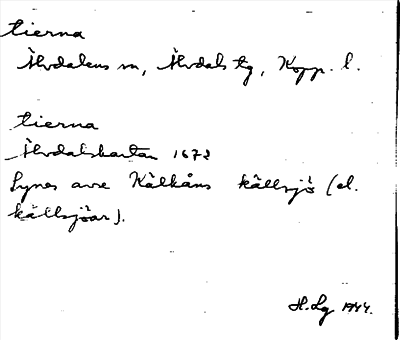 tierna
Älvdalens sn, Älvdals tg, Kopp. l.
tierna
Älvdalskartan 1672
Synes avse Kälkåns källsjö (el.
källsjöar).
H.Lg 1944.